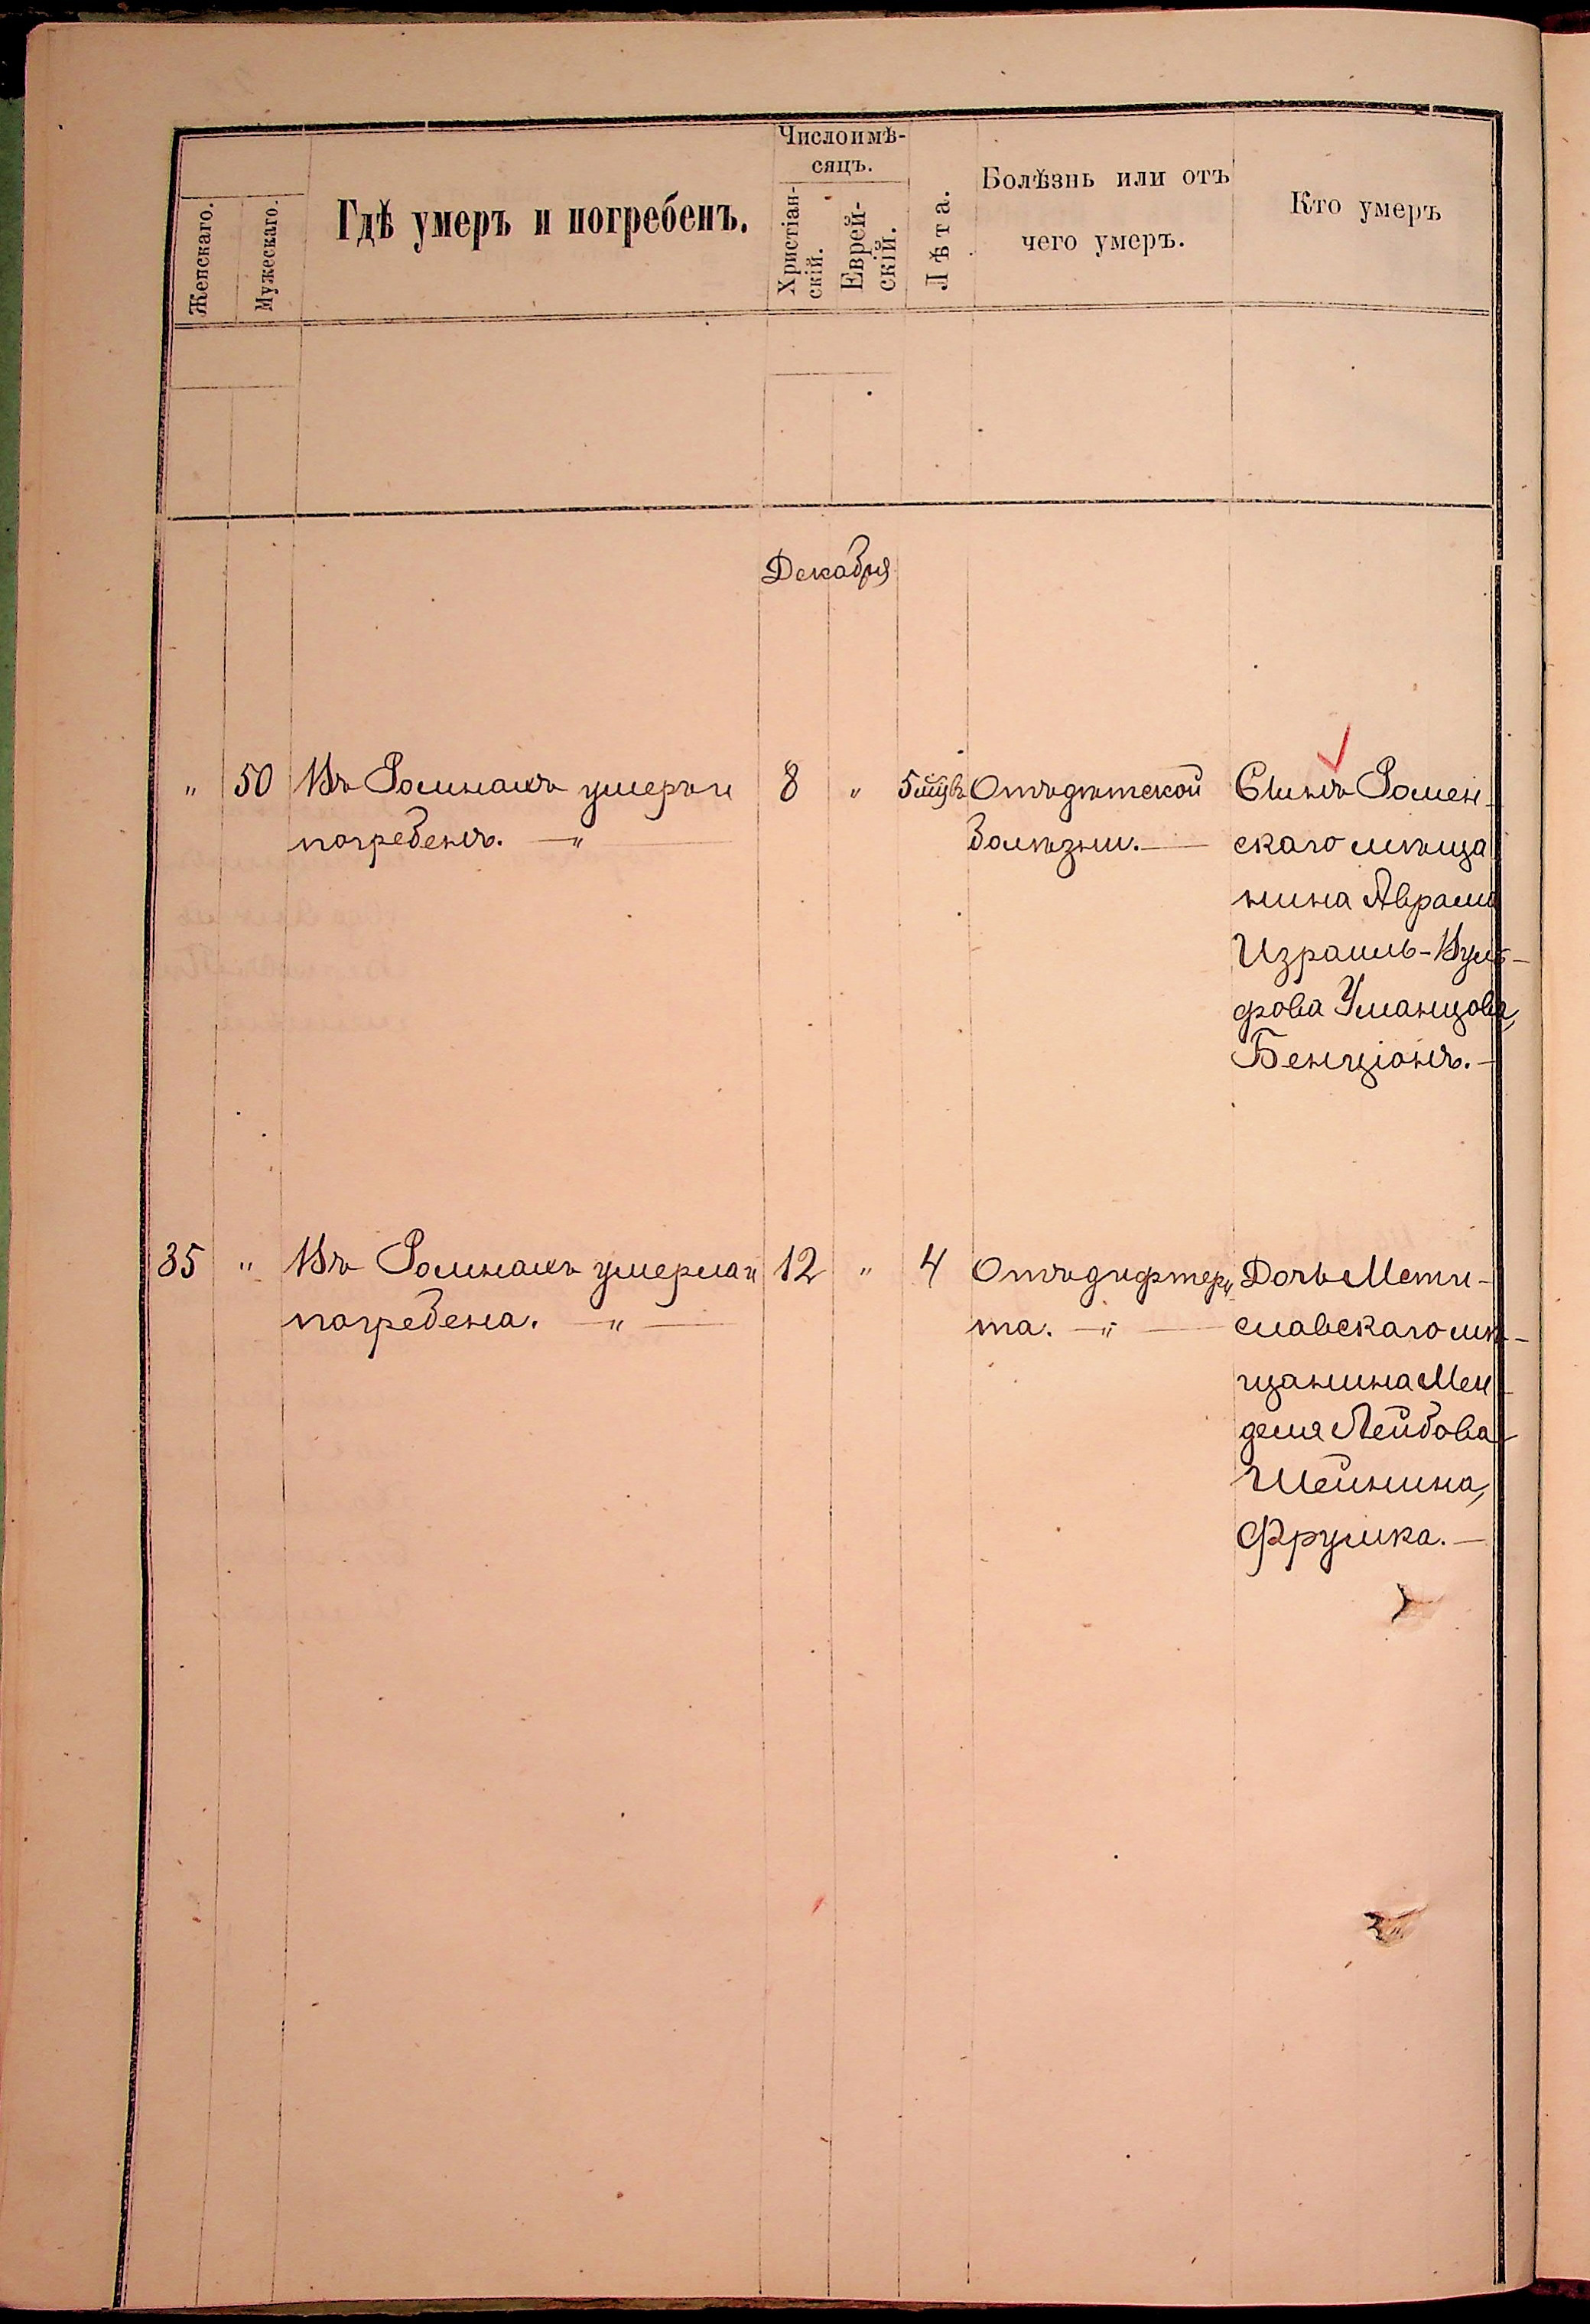 Женскаго.
Мужескаго.
Гдѣ умеръ и погребенъ.
Число и мѣ-
сяцъ.
Христіан-
скій.
Еврей-
скій.
Лѣта.
Болѣзнь или отъ
чего умеръ.
Кто умеръ
Декабря
" 50 Въ Ромнахъ умеръ и 8 " 5 мцв Отъ дѣтской Сынъ Ромен-
погребенъ. — " — болѣзни. — скаго мѣща
нина Аврама
Израиль-Вуль-
фова Уманцова,
Бенціонъ. —
35 " Въ Ромнахъ умерла и 12 " 4 Отъ дифтери Дочь Мсти-
погребена. — " — та. — " — славскаго мѣ-
щанина Мен
деля Лейбова
Шейнина,
Фрумка. —